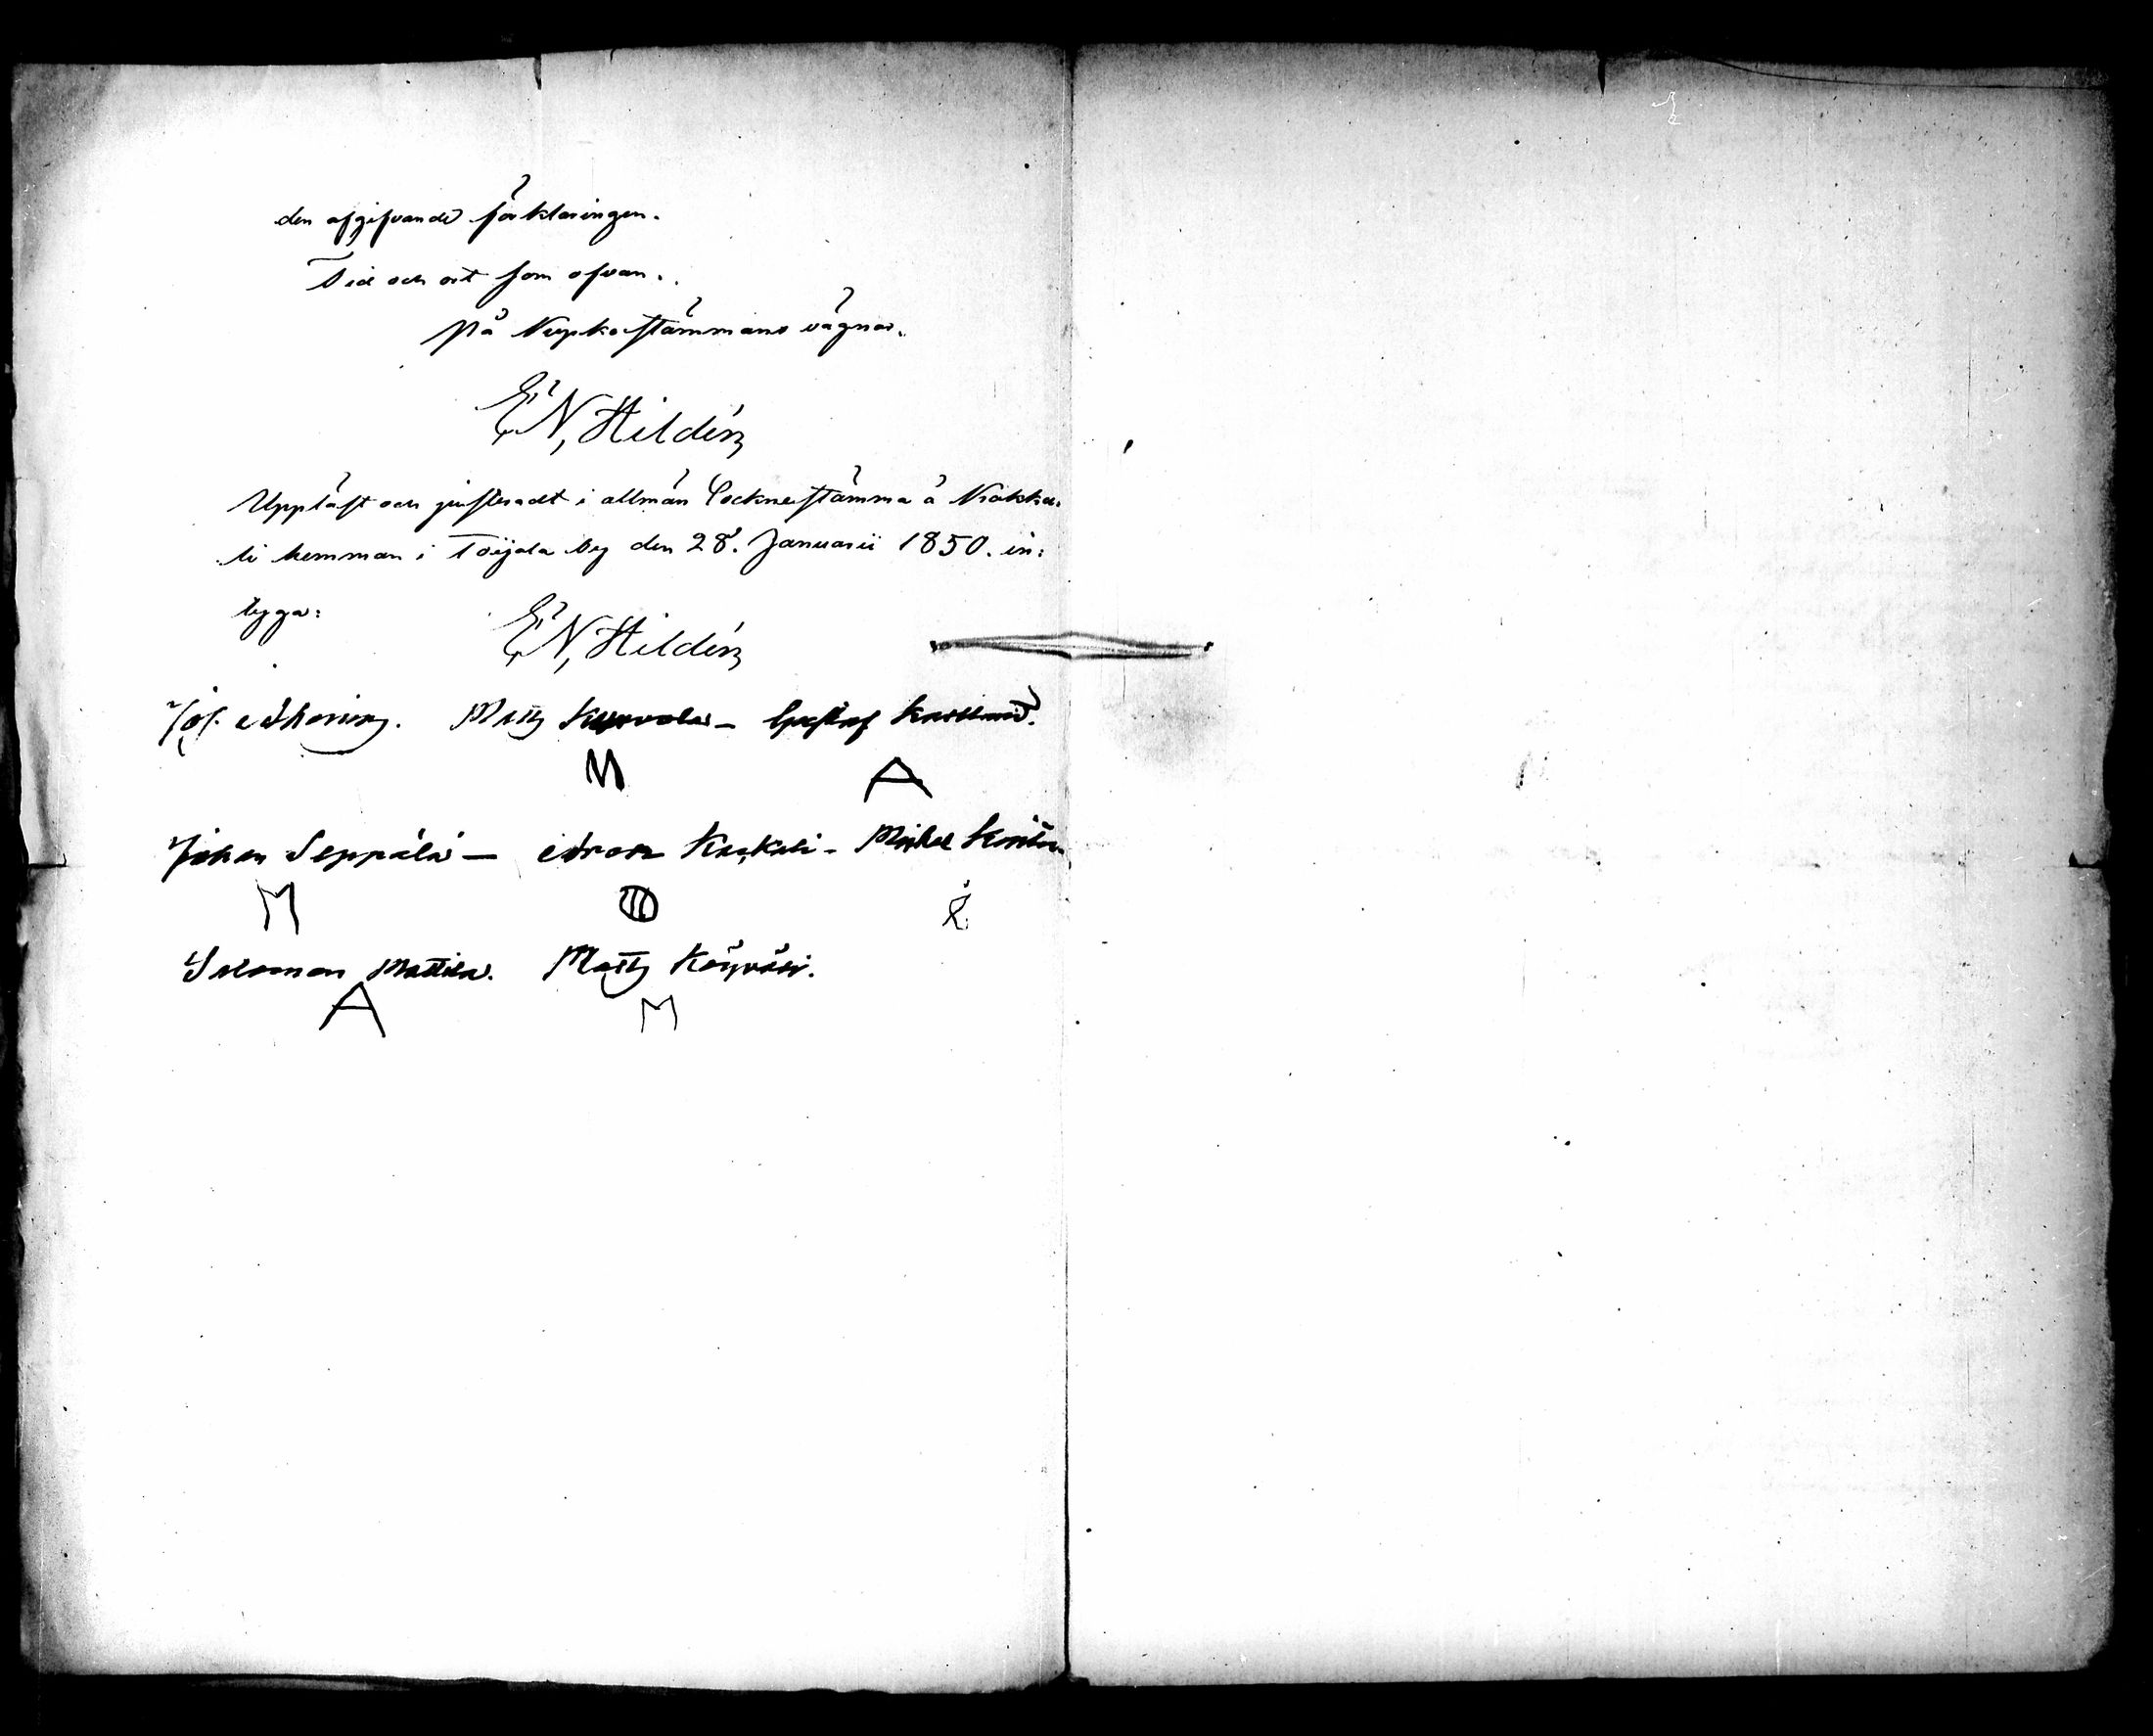 den afgifvande förklaringen.
Tid och ort som ofvan.
På Kyrkostämmans vägnar.
E N, Hildén
Uppläst och justeradt i allmän Socknestämma å Nackka-
li hemman i Toijala by den 28. Januarii 1850. in:
tyga:
E N, Hildén
Jos. Matts Kurvola - Gustaf
M A
Johan Seppälä - Aron Kaskali - Michel
M
Salomon Mattila. Matts Köyväri.
A M